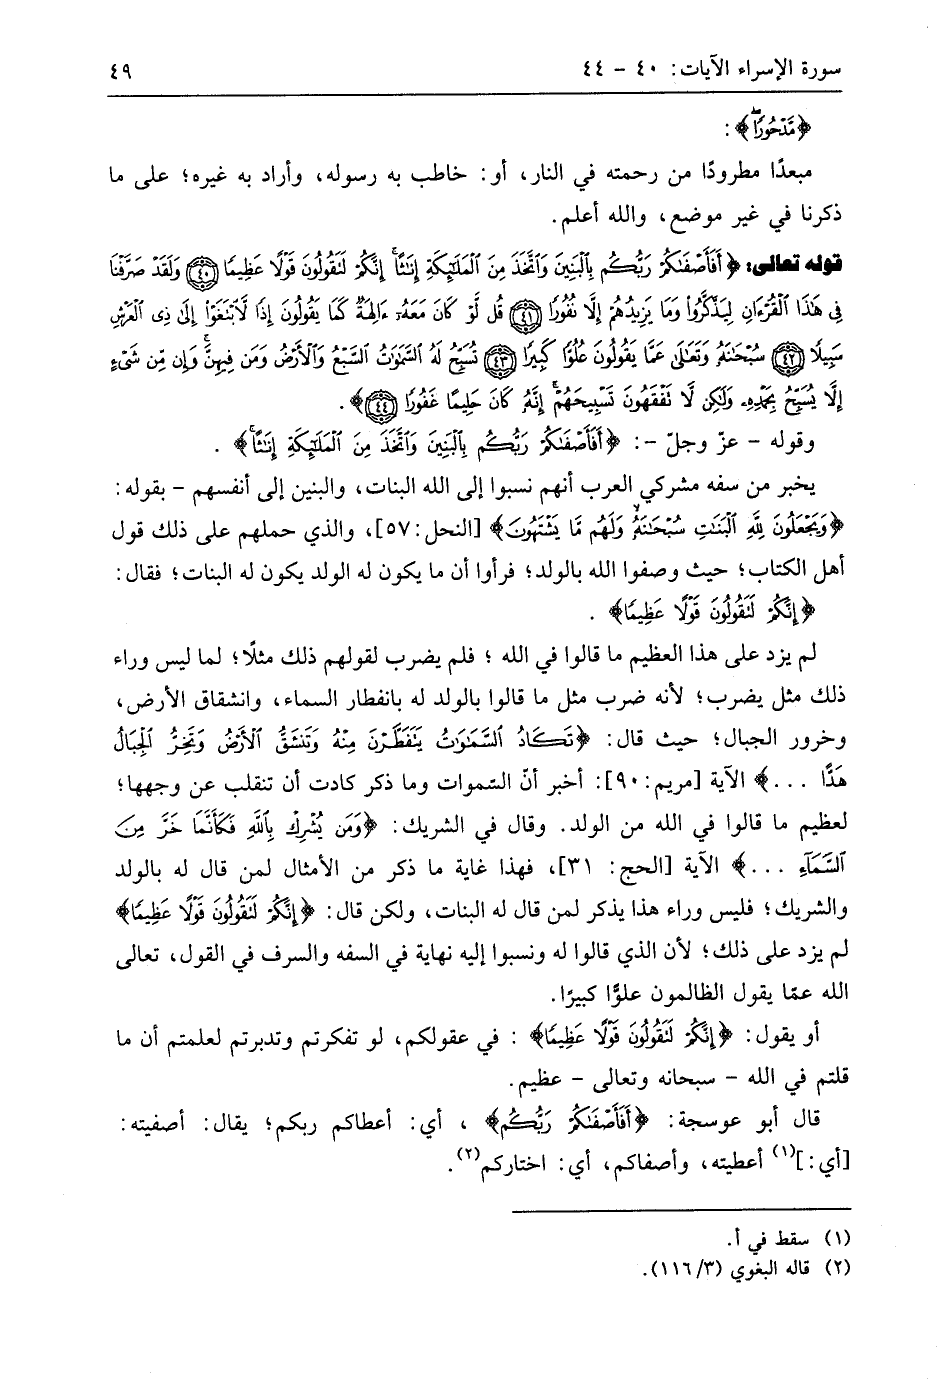 سورة الإسراء الآيات: ٤٠ - ٤٤
٤٩
﴿مَّدْحُورًا﴾:
مبعدًا مطرودًا من رحمته في النار، أو: خاطب به رسوله، وأراد به غيره؛ على ما
ذكرنا في غير موضع، والله أعلم.
قوله تعالى: ﴿أَفَأَصْفَىٰكُمْ رَبُّكُم بِٱلْبَنِينَ وَٱتَّخَذَ مِنَ ٱلْمَلَـٰٓئِكَةِ إِنَـٰثًا ۚ إِنَّكُمْ لَتَقُولُونَ قَوْلًا عَظِيمًا ﴿٤٠﴾ وَلَقَدْ صَرَّفْنَا
فِى هَـٰذَا ٱلْقُرْءَانِ لِيَذَّكَّرُوا۟ وَمَا يَزِيدُهُمْ إِلَّا نُفُورًا ﴿٤١﴾ قُل لَّوْ كَانَ مَعَهُۥٓ ءَالِهَةٌ كَمَا يَقُولُونَ إِذًا لَّٱبْتَغَوْا۟ إِلَىٰ ذِى ٱلْعَرْشِ
سَبِيلًا ﴿٤٢﴾ سُبْحَـٰنَهُۥ وَتَعَـٰلَىٰ عَمَّا يَقُولُونَ عُلُوًّا كَبِيرًا ﴿٤٣﴾ تُسَبِّحُ لَهُ ٱلسَّمَـٰوَٰتُ ٱلسَّبْعُ وَٱلْأَرْضُ وَمَن فِيهِنَّ ۚ وَإِن مِّن شَىْءٍ
إِلَّا يُسَبِّحُ بِحَمْدِهِۦ وَلَـٰكِن لَّا تَفْقَهُونَ تَسْبِيحَهُمْ ۗ إِنَّهُۥ كَانَ حَلِيمًا غَفُورًا ﴿٤٤﴾﴾.
وقوله - عزّ وجلّ -: ﴿أَفَأَصْفَىٰكُمْ رَبُّكُم بِٱلْبَنِينَ وَٱتَّخَذَ مِنَ ٱلْمَلَـٰٓئِكَةِ إِنَـٰثًا ۚ﴾.
يخبر من سفه مشركي العرب أنهم نسبوا إلى الله البنات، والبنين إلى أنفسهم - بقوله:
﴿وَيَجْعَلُونَ لِلَّهِ ٱلْبَنَـٰتِ سُبْحَـٰنَهُۥ ۙ وَلَهُم مَّا يَشْتَهُونَ﴾ [النحل: ٥٧]، والذي حملهم على ذلك قول
أهل الكتاب؛ حيث وصفوا الله بالولد؛ فرأوا أن ما يكون له الولد يكون له البنات؛ فقال:
﴿إِنَّكُمْ لَتَقُولُونَ قَوْلًا عَظِيمًا﴾.
لم يزد على هذا العظيم ما قالوا في الله ؛ فلم يضرب لقولهم ذلك مثلًا؛ لما ليس وراء
ذلك مثل يضرب؛ لأنه ضرب مثل ما قالوا بالولد له بانفطار السماء، وانشقاق الأرض،
وخرور الجبال؛ حيث قال: ﴿تَكَادُ ٱلسَّمَـٰوَٰتُ يَتَفَطَّرْنَ مِنْهُ وَتَنشَقُّ ٱلْأَرْضُ وَتَخِرُّ ٱلْجِبَالُ
هَدًّا ...﴾ الآية [مريم: ٩٠]: أخبر أنّ السّموات وما ذكر كادت أن تنقلب عن وجهها؛
لعظيم ما قالوا في الله من الولد. وقال في الشريك: ﴿وَمَن يُشْرِكْ بِٱللَّهِ فَكَأَنَّمَا خَرَّ مِنَ
ٱلسَّمَآءِ ...﴾ الآية [الحج: ٣١]، فهذا غاية ما ذكر من الأمثال لمن قال له بالولد
والشريك؛ فليس وراء هذا يذكر لمن قال له البنات، ولكن قال: ﴿إِنَّكُمْ لَتَقُولُونَ قَوْلًا عَظِيمًا﴾
لم يزد على ذلك؛ لأن الذي قالوا له ونسبوا إليه نهاية في السفه والسرف في القول، تعالى
الله عمّا يقول الظالمون علوًّا كبيرًا.
أو يقول: ﴿إِنَّكُمْ لَتَقُولُونَ قَوْلًا عَظِيمًا﴾ : في عقولكم، لو تفكرتم وتدبرتم لعلمتم أن ما
قلتم في الله - سبحانه وتعالى - عظيم.
قال أبو عوسجة: ﴿أَفَأَصْفَىٰكُمْ رَبُّكُم﴾ ، أي: أعطاكم ربكم؛ يقال: أصفيته:
[أي:](١) أعطيته، وأصفاكم، أي: اختاركم(٢).
(١) سقط في أ.
(٢) قاله البغوي (٣/١١٦).